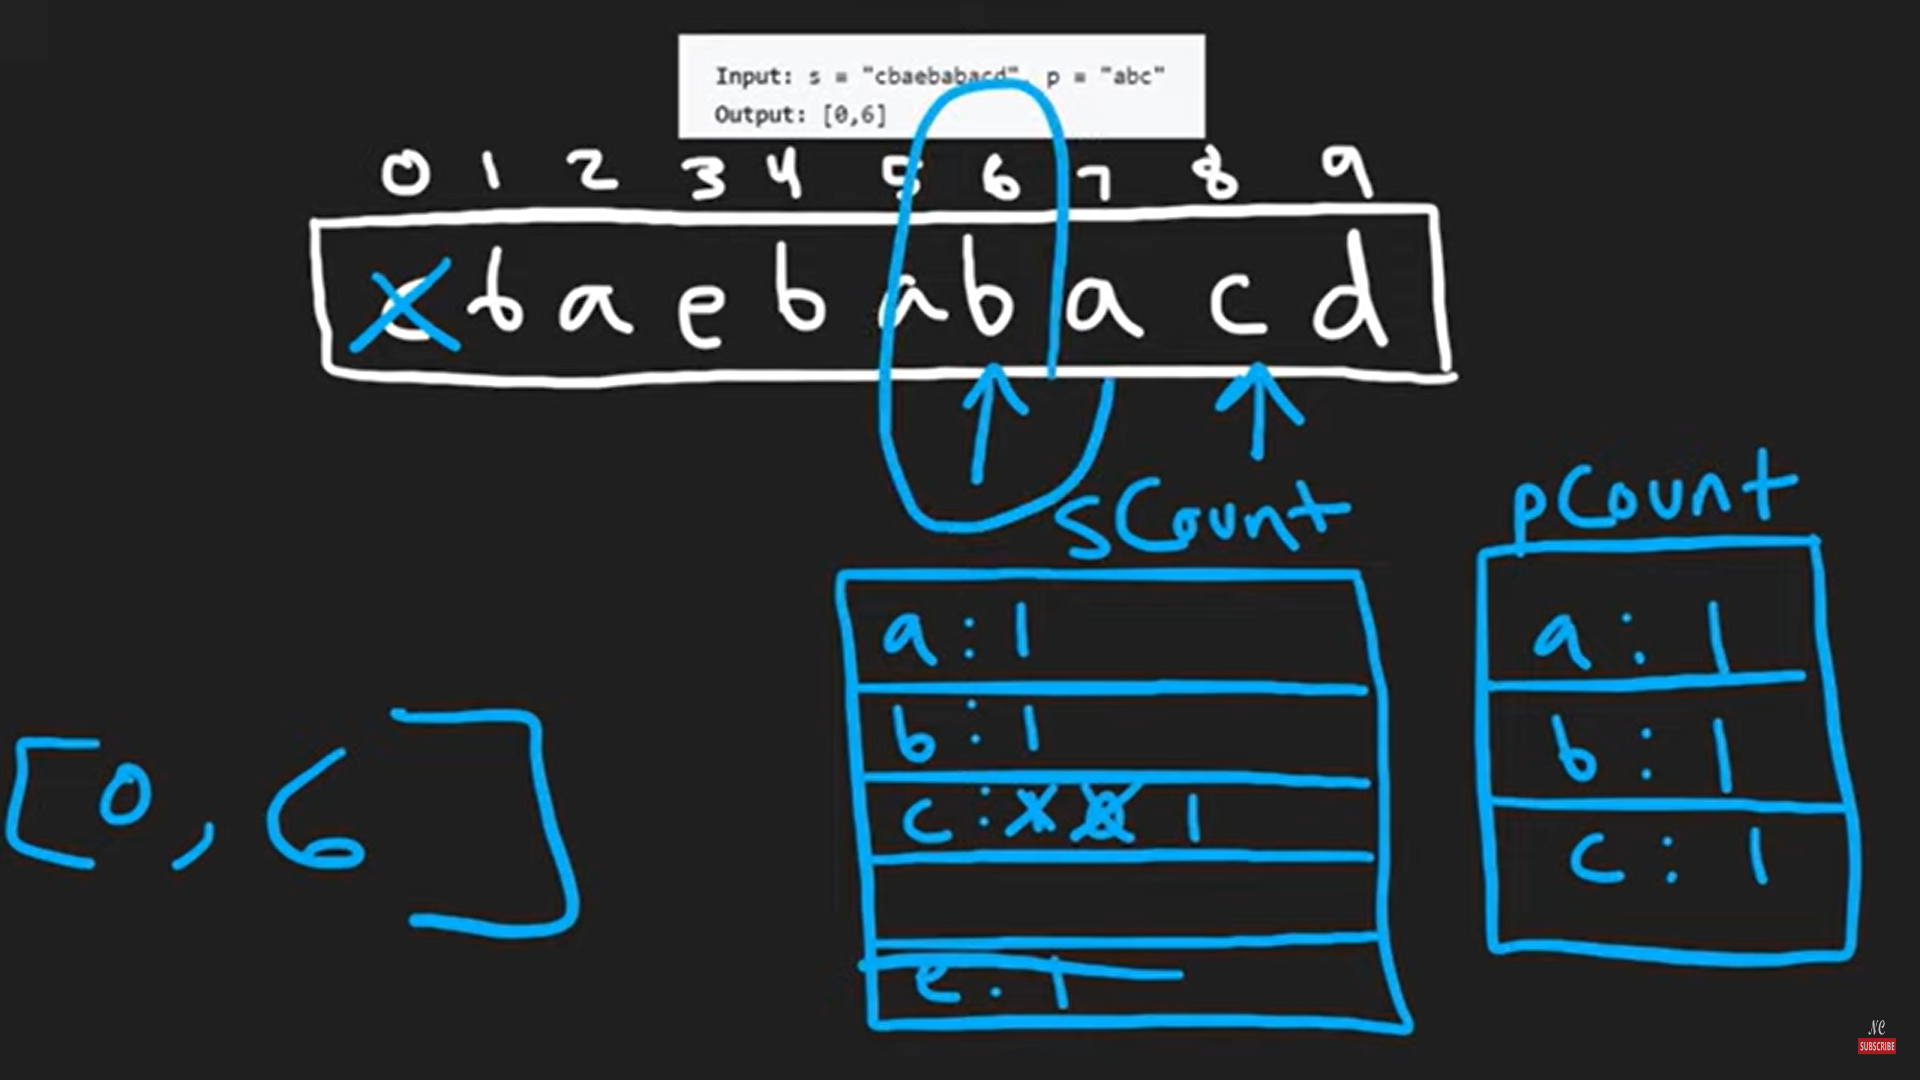 Input: s = "cbaebabacd", p = "abc"
Output: [0,6]
0 1 2 3 4 5 6 7 8 9
c b a e b a b a c d
sCount
pCount
a : 1
b : 1
c : 1 0 1
e : 1
a : 1
b : 1
c : 1
[0, 6]
NC
SUBSCRIBE